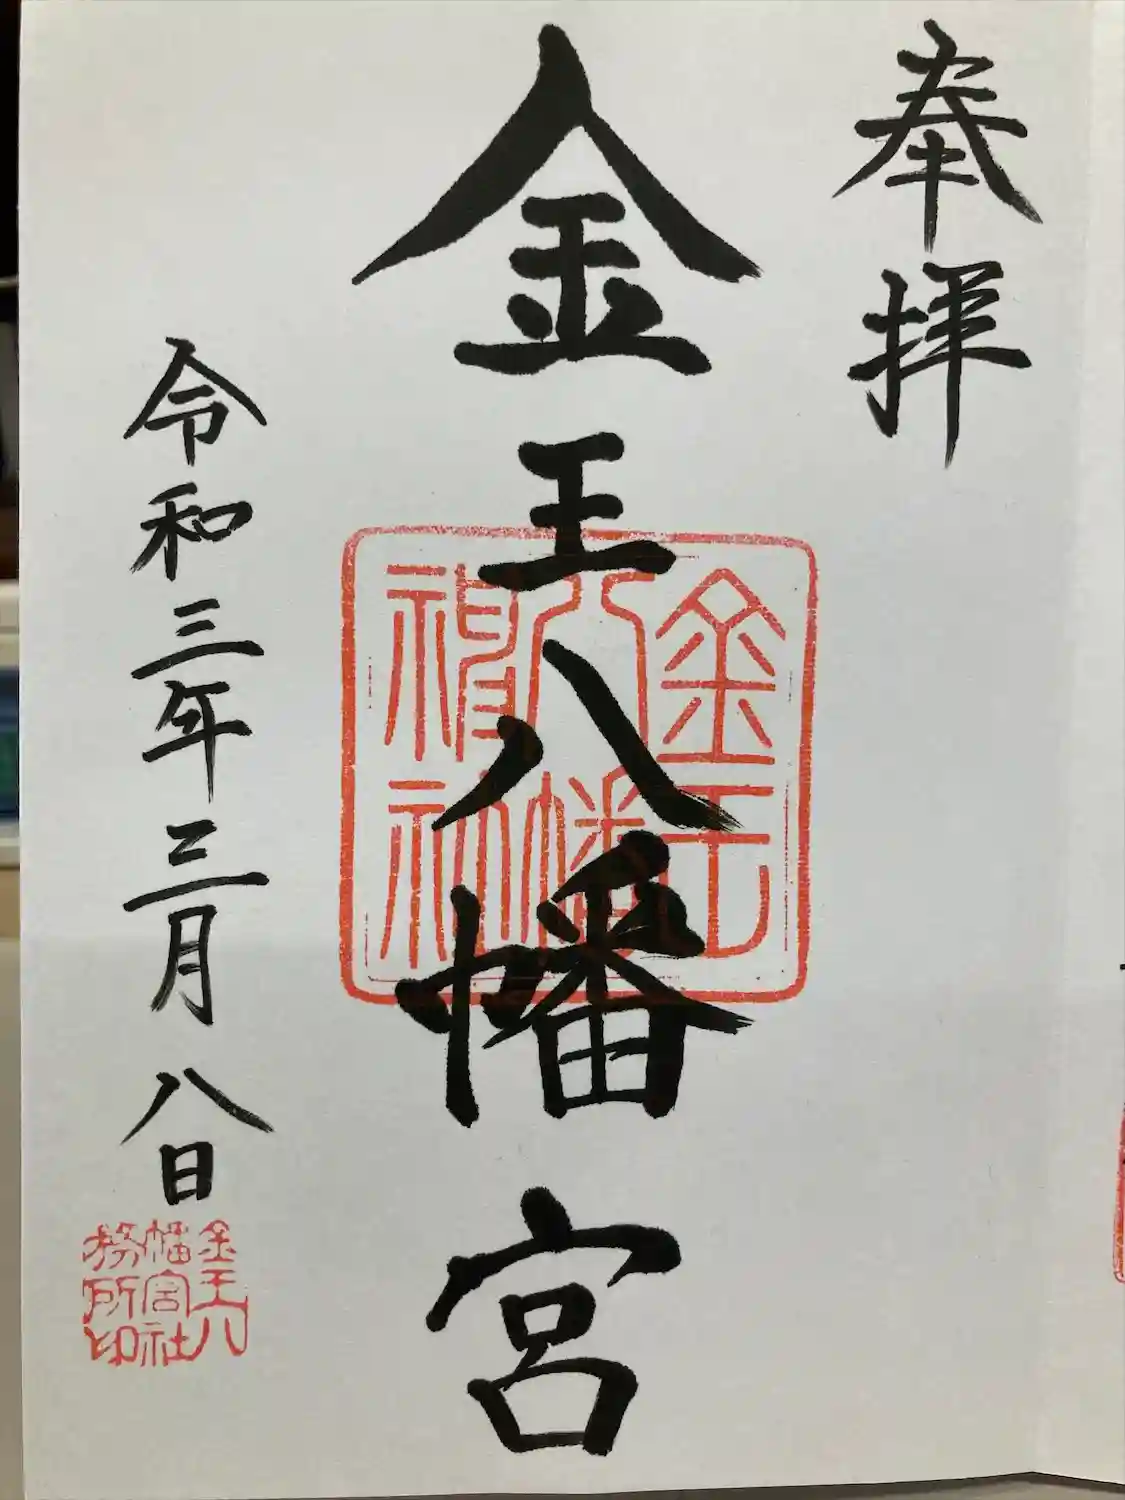 奉拝
金王八幡宮
令和三年三月八日
金王
八幡
神社
金王八
幡宮社
務所印